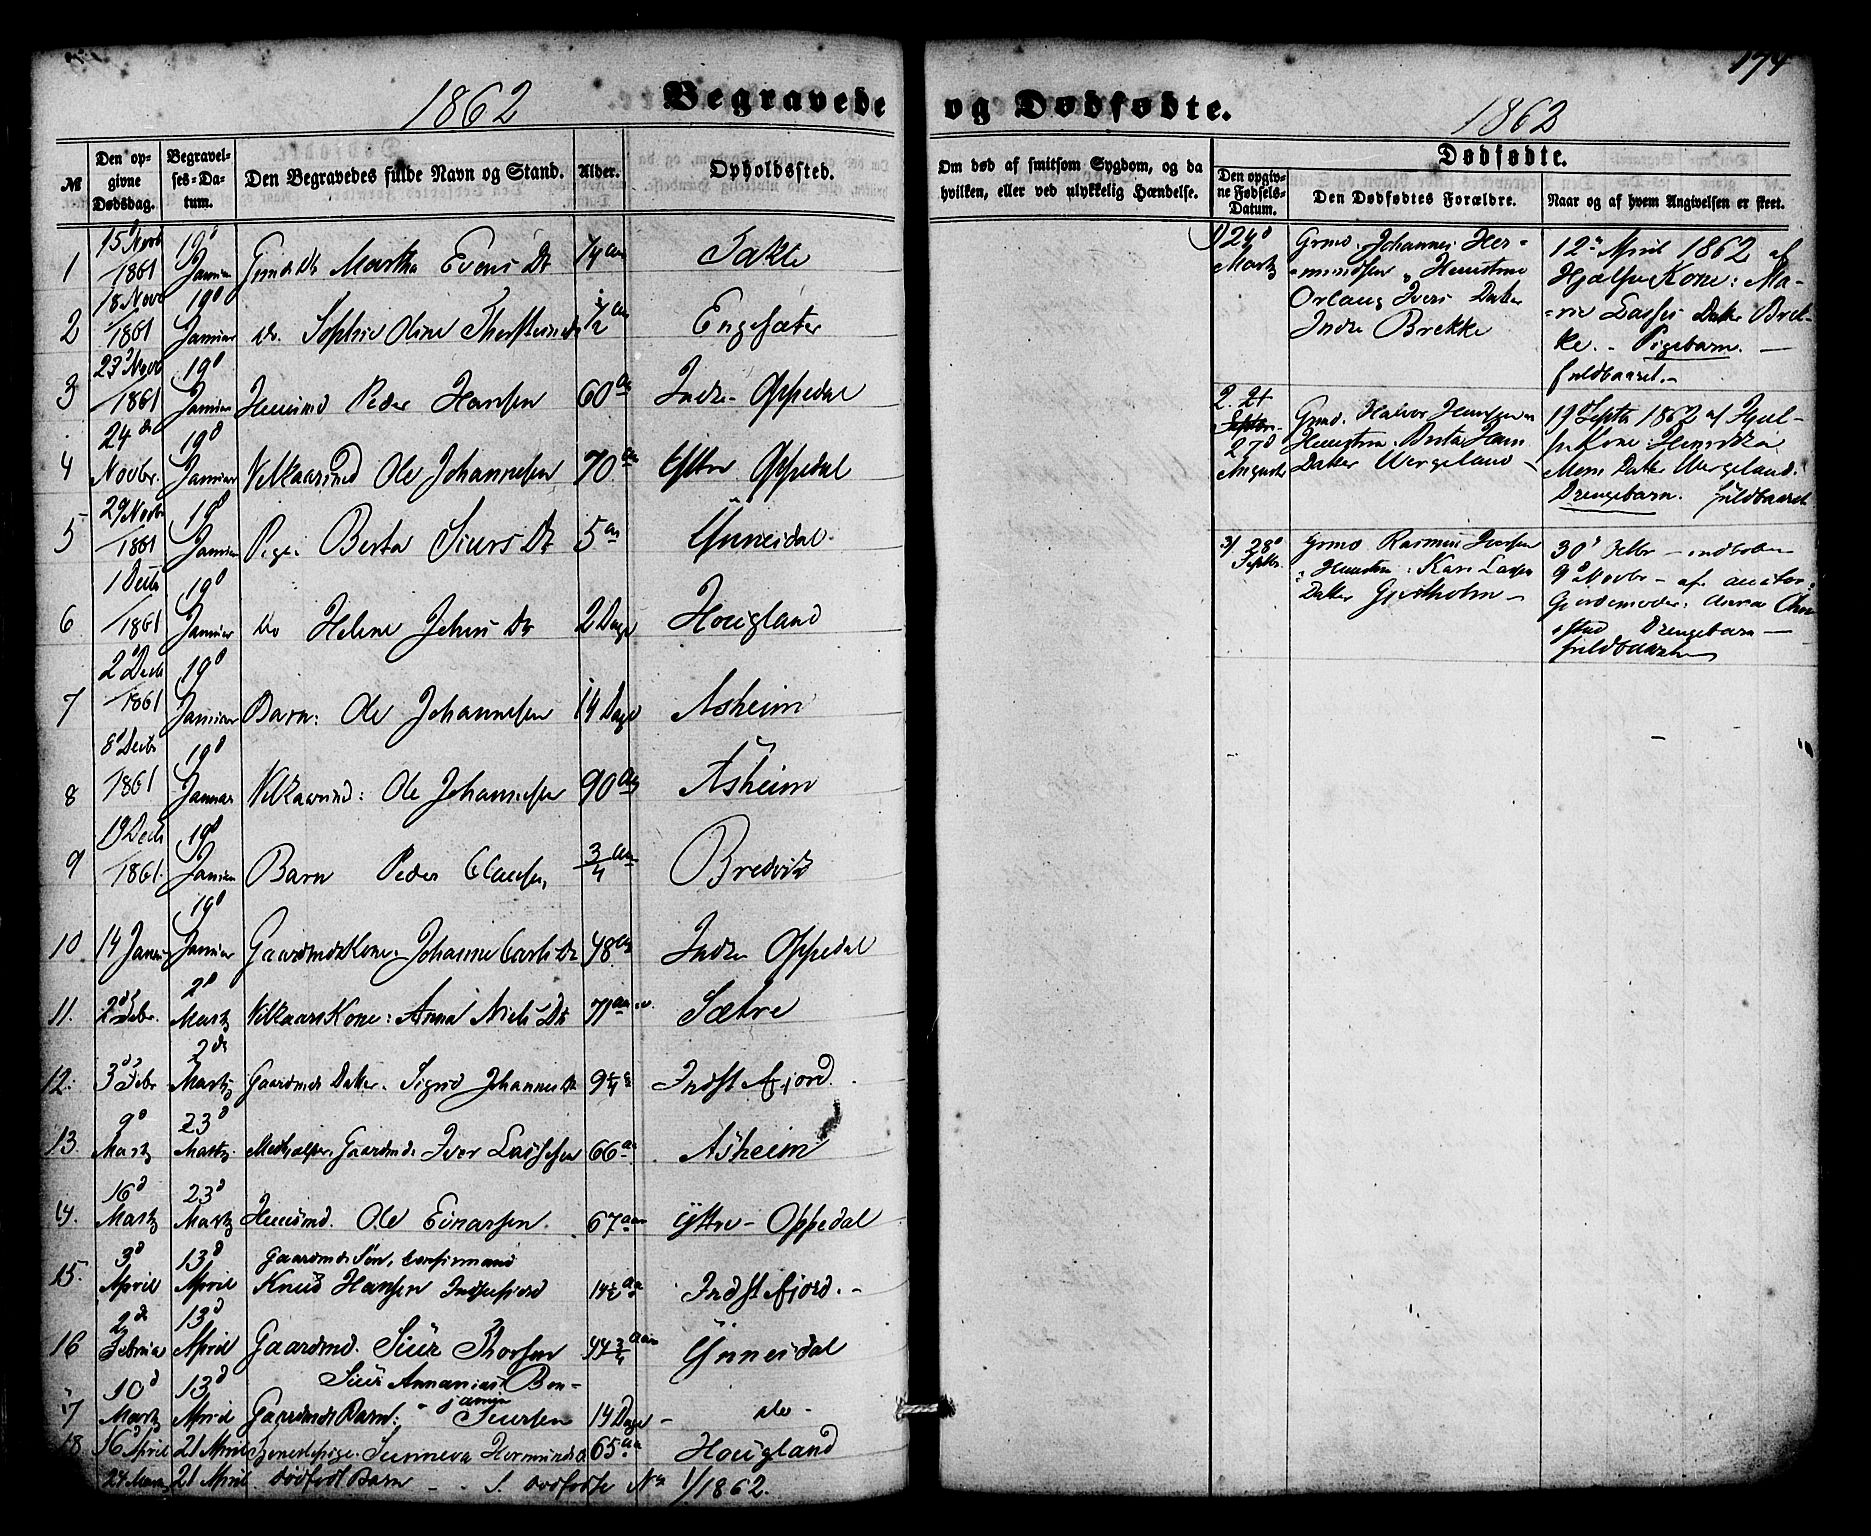 174
1862 Begravede og Dødfødte. 1862
№ Den opgivne Dødsdag. Begravelses-Datum. Den Begravedes fulde Navn og Stand. Alder. Opholdssted.
1 15 Novb 1861 19d Januar Martha Evens Dt 74 Aar Takle
2 18 Novb 1861 19d Januar do. Sophie Oline Thorsteinsdt 1/2 Aar Engesæter
3 23 Novb 1861 19d Januar Huusmd Peder Hansen 60 Aar Indre Oppedal
4 24de Novbr. 19d Januar Velkaarsmd Ole Johannesen 70 Aar Yttre Oppedal
5 29 Novbr 1861 19d Januar Pige. Berta Siurs Dt 5 Aar Ynnesdal
6 1 Decbr 1861 19d Januar do Helene Johns Dt 2 Dage Hougland
7 2 Decb 1861 19d Januar Barn: Ole Johannesen 14 Dage Asheim
8 8d Decbr 1861 19d Januar Velkaarmd: Ole Johannesen 90 Aar Åsheim
9 19 Decb 1861. 19d Januar Barn Peder Clausen, 3/4 Aar Bredvik
10 14 Januar 19d Januar Gaardmds Kone. Johanne Carls Dt 48 Aar Indre Oppedal
11. 2d Febr. 2d Martz Velkaars Kone: Anna Niels Dt 71 Aar Sætre
12. 3d Febr 2de Martz Gaardmds Datter. Sigrid Johannes Dt 9 1/4 Indst Afjord.
13 9d Martz 23d Martz. Medhjælper, Gaardmd. Iver Lassesen 66 Aar Asheim
14. 16d Martz 23d Martz Huusmd. Ole Einarsen. 67 Aar Yttre Oppedal
15. 3d April 13d April Gaardmds Søn, Confirmand
Knud Hansen Indrefjord 14 1/2 Aar Indst Afjord.
16 2de Februar 13d April Gaardmd. Siur Thorsen 44 3/4 Aar Ynnesdal
17 10d Martz 13d April Gaardmds Barn: Siur Annanias Benjamin Siursen 14 Dage do
18. 16 April 21 April Sunneva Hermunds 65 Aar Hougland
24 Marts 21 April. dødfødt Barn S. dødfødte Nr 1/1862.
Om død af smitsom Sygdom, og da
hvilken, eller ved ulykkelig Hændelse.
Dødfødte.
Den opgivne Fødsels-Datum. Den Dødfødtes Forældre. Naar og af hvem Angivelsen er skeet.
1) 24d Martz
Grmd. Johannes Her-
mundsen, Huustru
Orlaug Ivers Datter
Indre Brekke
12te April 1862 af
Hjælpe Kone: Ma-
rie Lasses Datter Brek-
ke. - Pigebarn. -
fuldbaaret.-
2. 21 Septbr. 27d August
Grmd. Halvor Hanssen
Huustru. Berta Hans
Datter Wergeland -
19 Septbr 1862 af Hjæl-
pe Kone: Henrikka
Mons Datter Wergeland.
Drengebarn. fuldbaaret
3) 28d Septbr.
Grmd Rasmus Iversen
Huustru: Kari Lasses
Datter Geitholm -
30d Octbr - indber.
9d Novbr - af
Gjordemoder: Anna
Drengebarn -
fuldbaaret